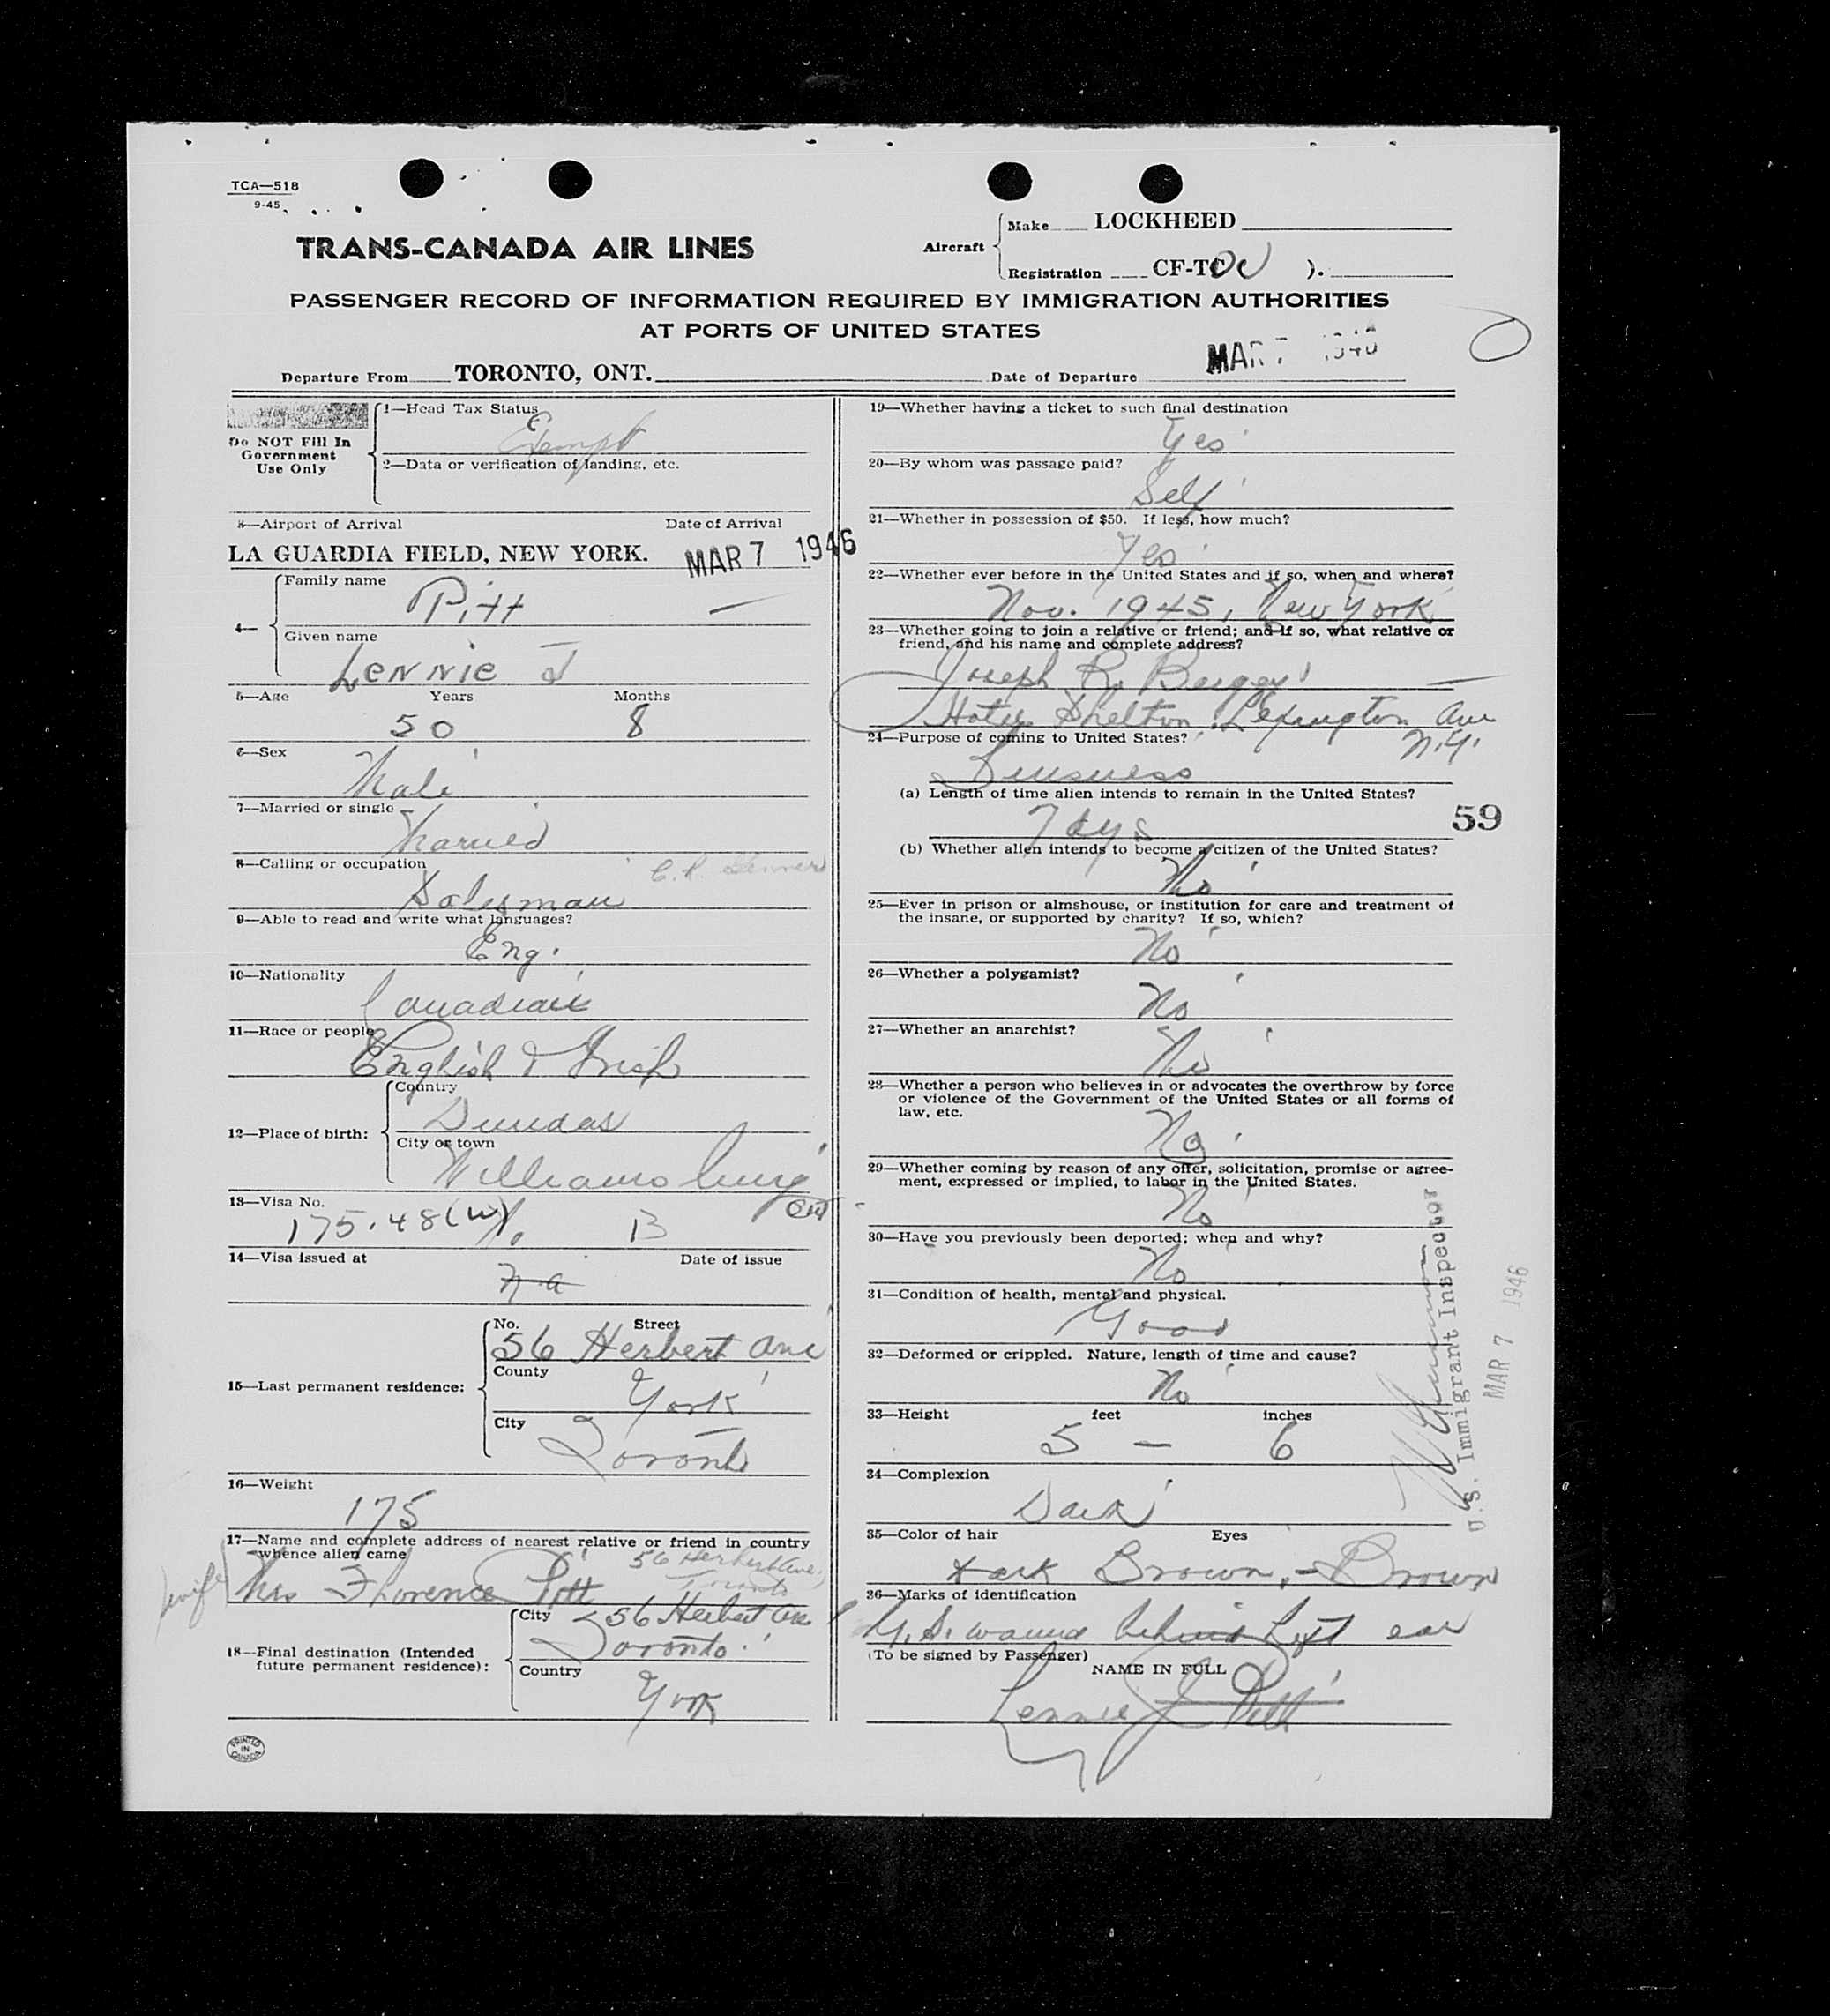 TCA—518
9-45
TRANS-CANADA AIR LINES
Aircraft
Make LOCKHEED
Registration CF-TC ).
PASSENGER RECORD OF INFORMATION REQUIRED BY IMMIGRATION AUTHORITIES
AT PORTS OF UNITED STATES
Departure From TORONTO, ONT.
Date of Departure MAR 7 1946
Do NOT Fill In
Government
Use Only
1—Head Tax Status
Exempt
2—Data or verification of landing, etc.
3—Airport of Arrival Date of Arrival
LA GUARDIA FIELD, NEW YORK. MAR 7 1946
4—
Family name
Pitt
Given name
Lennie J
5—Age Years Months
50 8
6—Sex
Male
7—Married or single
Married
8—Calling or occupation
Salesman
9—Able to read and write what languages?
Eng.
10—Nationality
Canadian
11—Race or people
English & Irish
12—Place of birth:
Country
Dundas
City or town
Williamsburg
Ont
13—Visa No.
175.48(W) B
14—Visa issued at Date of issue
na
15—Last permanent residence:
No. Street
56 Herbert Ave
County
York
City
Toronto
16—Weight
175
17—Name and complete address of nearest relative or friend in country
whence alien came
56 Herbert Ave.
Toronto
wife Mrs Florence Pitt
18—Final destination (Intended
future permanent residence):
City 56 Herbert Ave
Toronto.
Country
York
PRINTED
IN
CANADA
19—Whether having a ticket to such final destination
Yes
20—By whom was passage paid?
Self
21—Whether in possession of $50. If less, how much?
Yes
22—Whether ever before in the United States and if so, when and where?
Nov. 1945, New York
23—Whether going to join a relative or friend; and if so, what relative or
friend, and his name and complete address?
Joseph R.
Hotel Shelton, Lexington Ave
N.Y.
24—Purpose of coming to United States?
Business
(a) Length of time alien intends to remain in the United States?
7 dys
59
(b) Whether alien intends to become a citizen of the United States?
No
25—Ever in prison or almshouse, or institution for care and treatment of
the insane, or supported by charity? If so, which?
No
26—Whether a polygamist?
No
27—Whether an anarchist?
No
28—Whether a person who believes in or advocates the overthrow by force
or violence of the Government of the United States or all forms of
law, etc.
No
29—Whether coming by reason of any offer, solicitation, promise or agree-
ment, expressed or implied, to labor in the United States.
No
30—Have you previously been deported; when and why?
No
31—Condition of health, mental and physical.
Good
32—Deformed or crippled. Nature, length of time and cause?
No
33—Height feet inches
5 — 6
34—Complexion
Dark
35—Color of hair Eyes
Dark Brown, - Brown
36—Marks of identification
G.S. wound behind Left ear
(To be signed by Passenger)
NAME IN FULL
Lennie J Pitt
U.S. Immigrant Inspector
MAR 7 1946